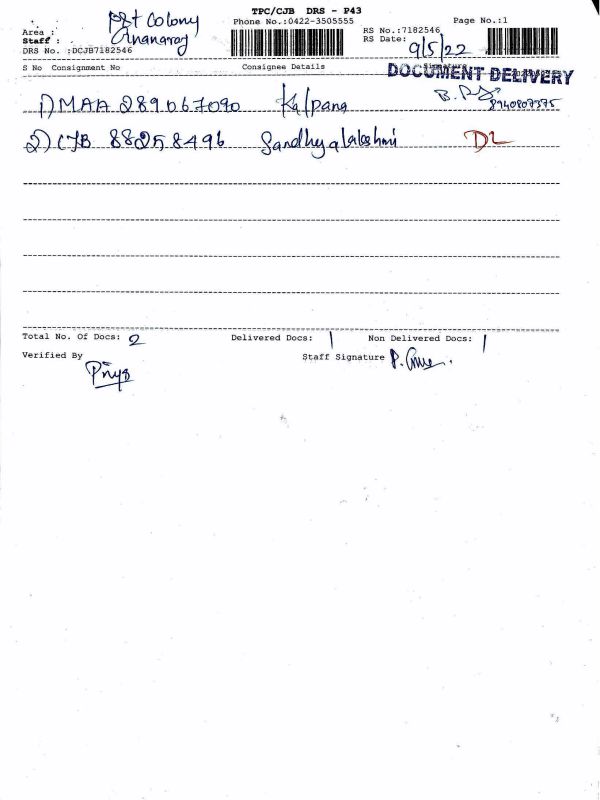 TPC/CJB DRS - P43
Area : P&t Colony
Phone No.:0422-3505555
Page No.:1
Staff : Ananaraj
RS No.:7182546
RS Date: 9/5/22
DRS No. :DCJB7182546
S No Consignment No Consignee Details
DOCUMENT DELIVERY
1) MAA 289067090 Kalpana
8940807375
2) CJB 88258496 Sandhyalakshmi DL
Total No. Of Docs: 2 Delivered Docs: 1 Non Delivered Docs: 1
Verified By Staff Signature
Priya